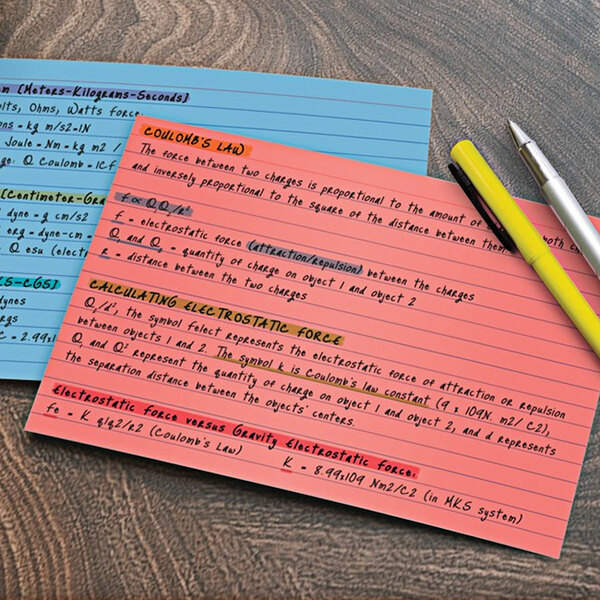 m [Meters-Kilograms-Seconds]
olts, Ohms, Watts force
ons = kg m/s2=1N
Joule = Nm = kg m2 /
ge. Q Coulomb = 1Cf
[Centimeter-Gra
dyne = g cm/s2
erg = dyne-cm =
Q esu (elect
KS-CGS]
dynes
rgs
C = 2.99x1
COULOMB'S LAW
The force between two charges is proportional to the amount of both ch
and inversely proportional to the square of the distance between them
f ∝ Q,Q2/r²
f = electrostatic force (attraction/repulsion) between the charges
Q, and Q2 = quantity of charge on object 1 and object 2
r = distance between the two charges
CALCULATING ELECTROSTATIC FORCE
Q2/d², the symbol felect represents the electrostatic force of attraction or repulsion
between objects 1 and 2. The symbol k is Coulomb's law constant (9 x 109N. m2/ C2),
Q, and Q² represent the quantity of charge on object 1 and object 2, and d represents
the separation distance between the objects' centers.
Electrostatic Force versus Gravity Electrostatic force,
fe = K q1q2/R2 (Coulomb's Law)
K = 8.99x109 Nm2/C2 (in MKS system)